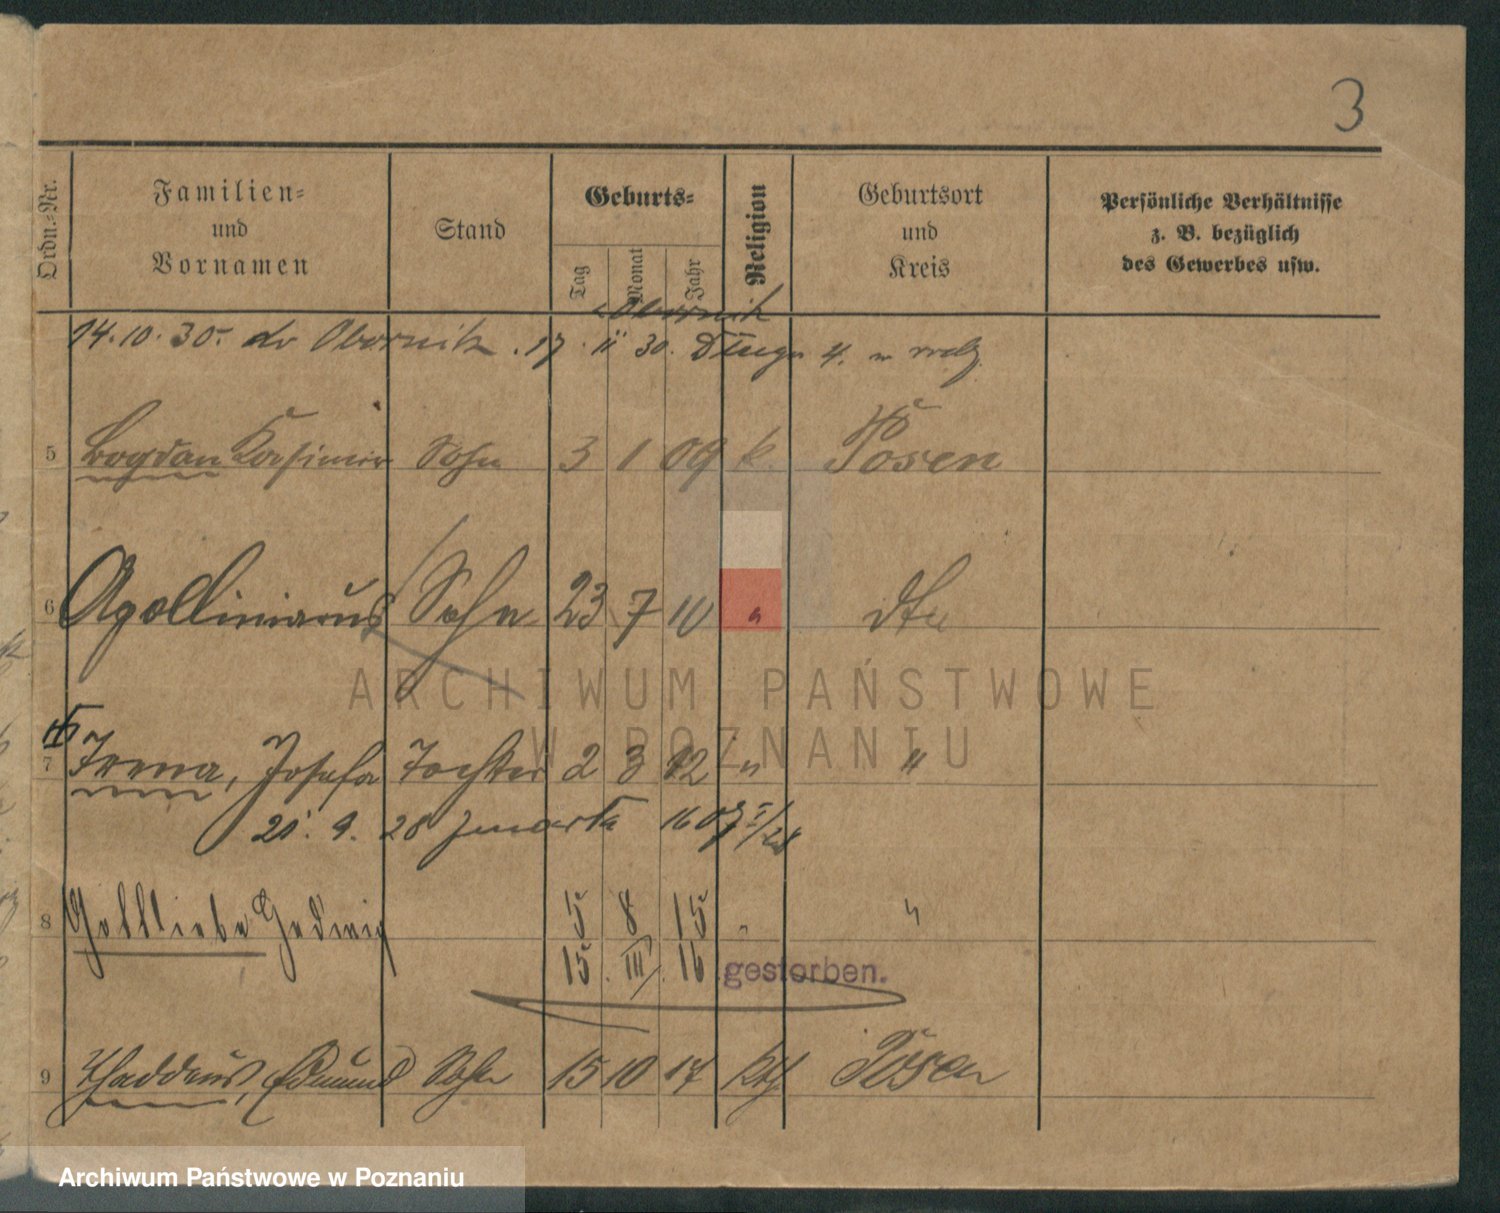 3
Ordn.-Nr.
Familien-
und
Vornamen
Stand
Geburts-
Tag
Monat
Jahr
Religion
Geburtsort
und
Kreis
Persönliche Verhältnisse
z. B. bezüglich
des Gewerbes usw.
Obornik
14.10.30. do Obornik 17. 11 30. Długa 4.
5 Bogdan Kasimir Sohn 3 1 09 k. Posen
6 Apollinarus Sohn 23 7 10 " dto
ARCHIWUM PAŃSTWOWE
W POZNANIU
7 Irena, Josefa Tochter 2 3 12 " "
21. 9. 28
8 Gottliebe Hedwig 5 8 15 " "
15. III. 16 gestorben.
9 Thaddeus, Edmund Sohn 15 10 17 kth Posen
Archiwum Państwowe w Poznaniu